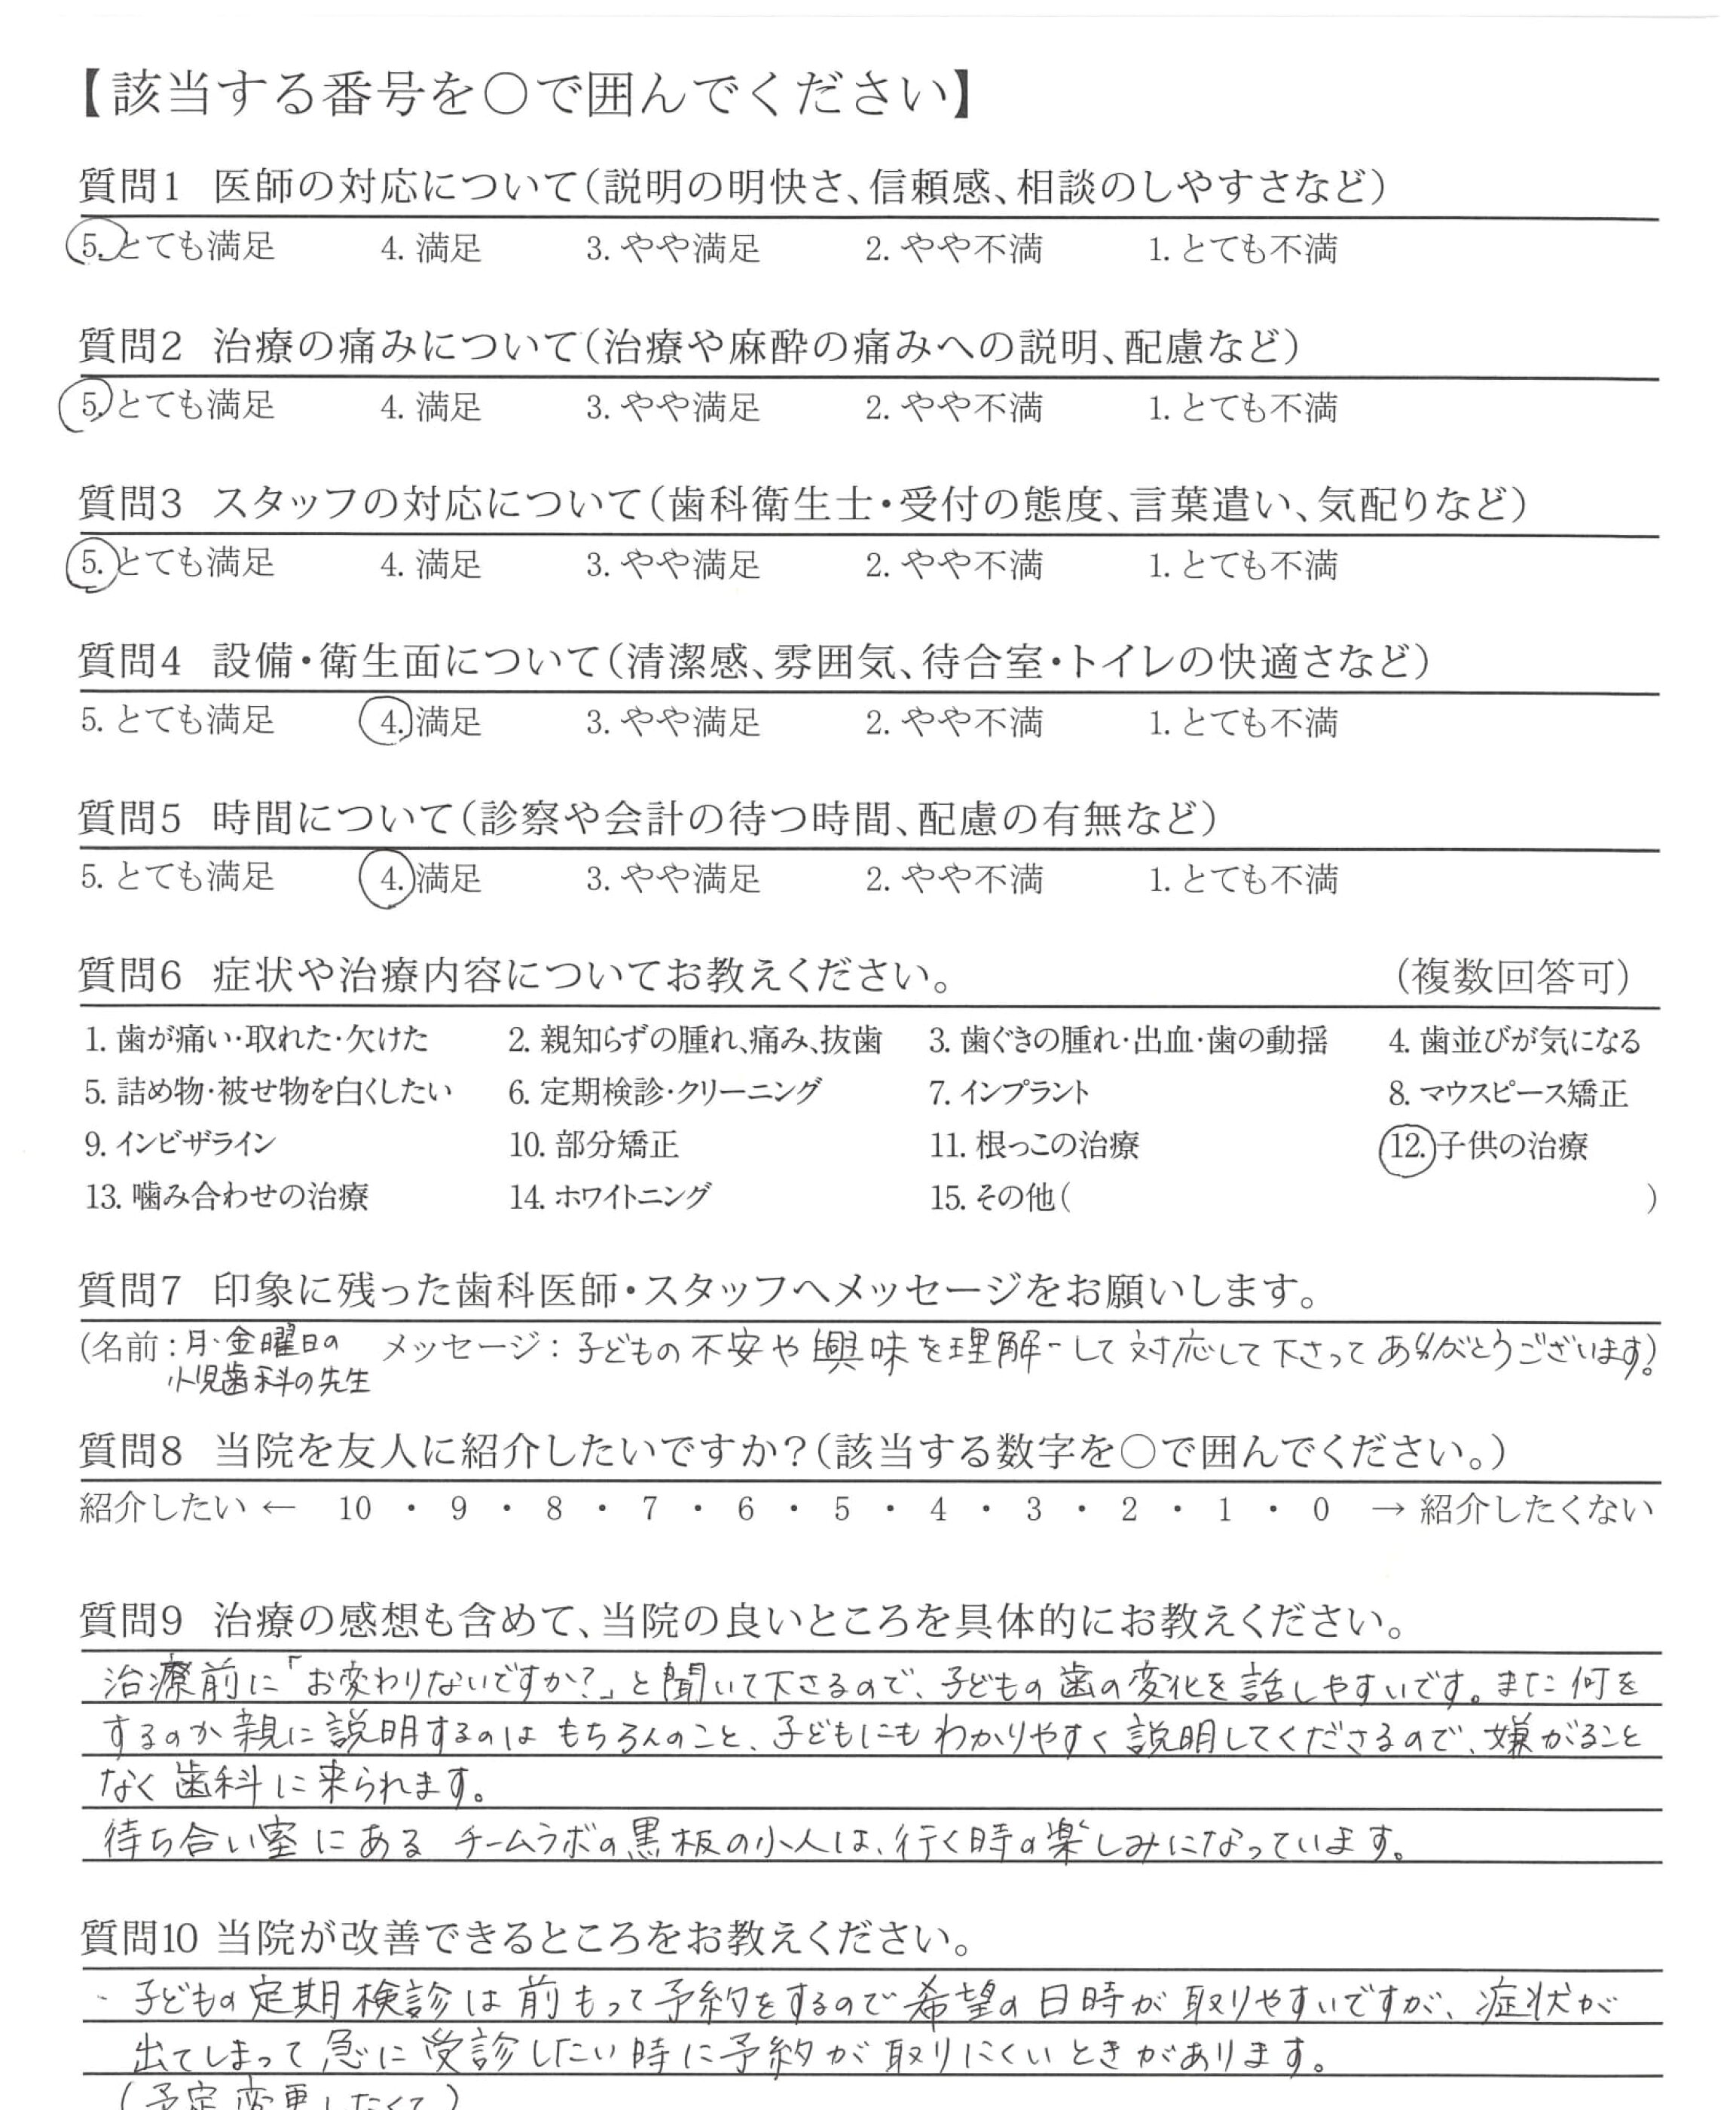 【該当する番号を○で囲んでください】
質問1 医師の対応について(説明の明快さ、信頼感、相談のしやすさなど)
5. とても満足 4. 満足 3. やや満足 2. やや不満 1. とても不満
質問2 治療の痛みについて(治療や麻酔の痛みへの説明、配慮など)
5. とても満足 4. 満足 3. やや満足 2. やや不満 1. とても不満
質問3 スタッフの対応について(歯科衛生士・受付の態度、言葉遣い、気配りなど)
5. とても満足 4. 満足 3. やや満足 2. やや不満 1. とても不満
質問4 設備・衛生面について(清潔感、雰囲気、待合室・トイレの快適さなど)
5. とても満足 4. 満足 3. やや満足 2. やや不満 1. とても不満
質問5 時間について(診察や会計の待つ時間、配慮の有無など)
5. とても満足 4. 満足 3. やや満足 2. やや不満 1. とても不満
質問6 症状や治療内容についてお教えください。 (複数回答可)
1. 歯が痛い・取れた・欠けた 2. 親知らずの腫れ、痛み、抜歯 3. 歯ぐきの腫れ・出血・歯の動揺 4. 歯並びが気になる
5. 詰め物・被せ物を白くしたい 6. 定期検診・クリーニング 7. インプラント 8. マウスピース矯正
9. インビザライン 10. 部分矯正 11. 根っこの治療 12. 子供の治療
13. 噛み合わせの治療 14. ホワイトニング 15. その他( )
質問7 印象に残った歯科医師・スタッフへメッセージをお願いします。
(名前:月・金曜日の メッセージ:子どもの不安や興味を理解して対応して下さってありがとうございます。)
小児歯科の先生
質問8 当院を友人に紹介したいですか?(該当する数字を○で囲んでください。)
紹介したい ← 10 ・ 9 ・ 8 ・ 7 ・ 6 ・ 5 ・ 4 ・ 3 ・ 2 ・ 1 ・ 0 → 紹介したくない
質問9 治療の感想も含めて、当院の良いところを具体的にお教えください。
治療前に「お変わりないですか?」と聞いて下さるので、子どもの歯の変化を話しやすいです。また何を
するのか親に説明するのはもちろんのこと、子どもにもわかりやすく説明してくださるので、嫌がること
なく歯科に来られます。
待ち合い室にある チームラボの黒板の小人は、行く時の楽しみになっています。
質問10 当院が改善できるところをお教えください。
・子どもの定期検診は前もって予約をするので希望の日時が取りやすいですが、症状が
出てしまって急に受診したい時に予約が取りにくいときがあります。
(予定変更したくて)